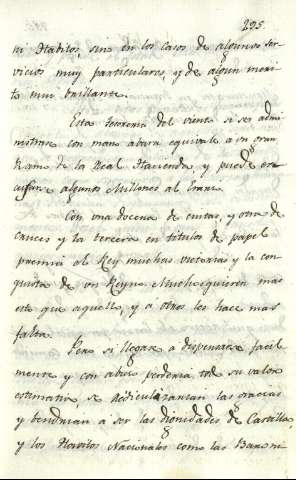 295
ni Habitos, sino en los casos de algunos ser
vicios muy particulares, y de algun meri
to mui brillante.
Esta tesoreria del viento si se admi
nistrase con mano abara equivale a un gran
Ramo de la Real Hacienda, y puede
algunos Millones al Erario.
Con una docena de cintas, y otra de
cruces y la tercera en titulos de papel
premió el Rey muchas victorias y la con
quista de un Reyno. Muchos quieren mas
este que aquello, y a otros les hace mas
falta.
Pero si llegase a dispensarse facil
mente y con abuso perderia todo su valor
estimativo, se ridiculizarian las gracias
y bendrian a ser las dignidades de Castilla,
y los Havitos Nacionales como las Baroni